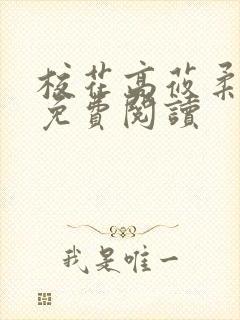 校花高莜柔
免費閱讀
我是唯一